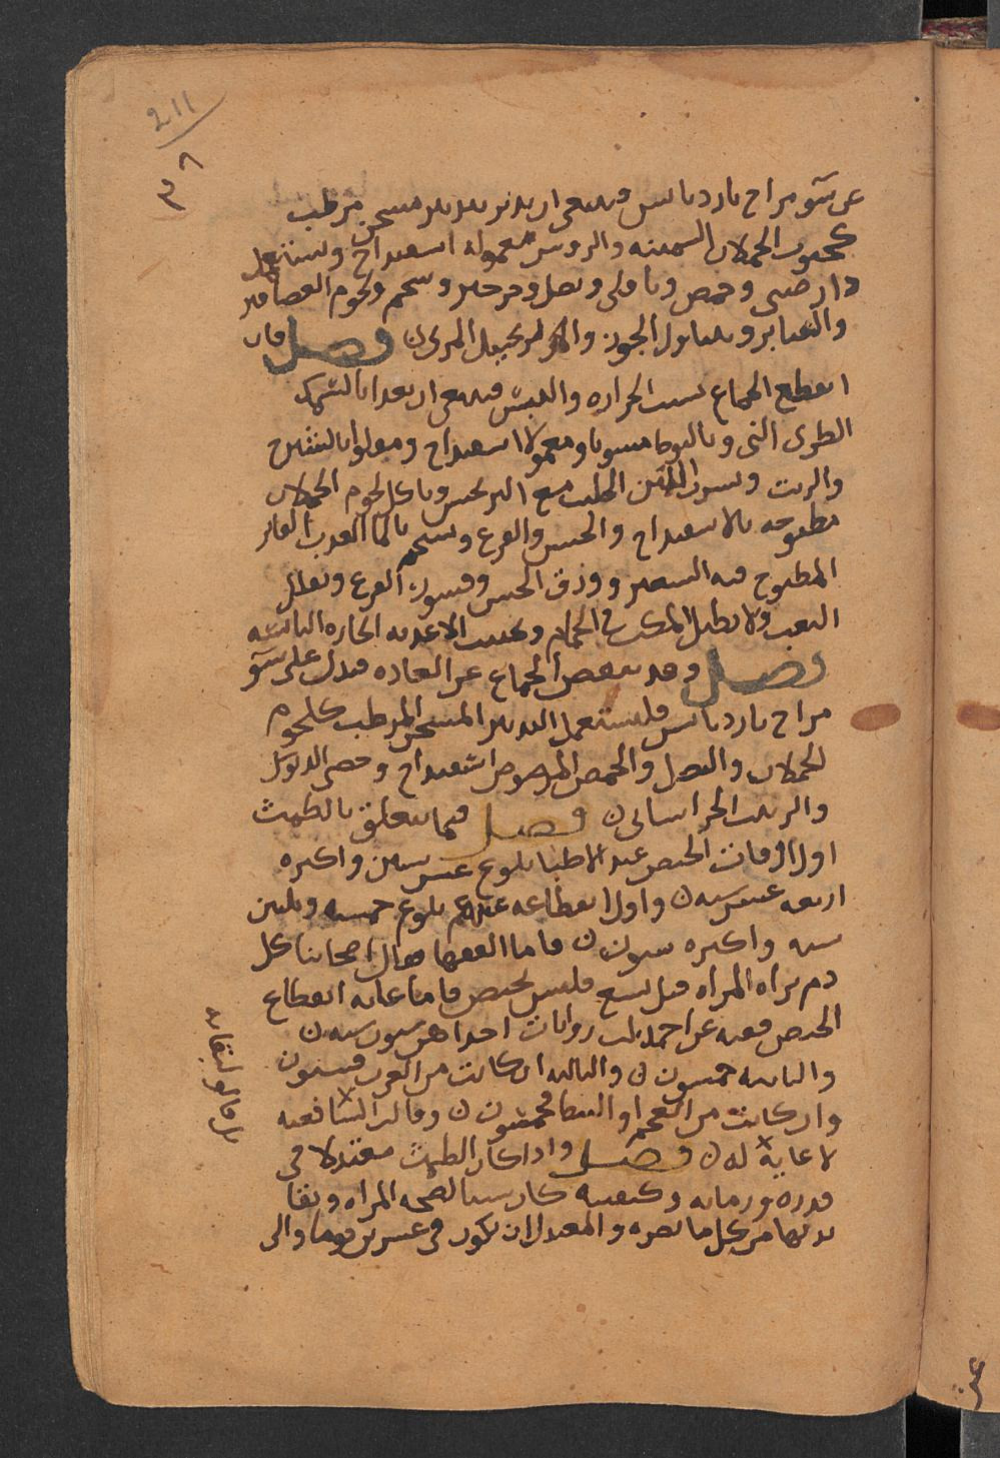 211
٣٨
عن سو مزاج بارد يابس فينبغي ان يدبر بتدبير مسخن مرطب
كجنوب الحملان السمينه والروس معموله اسفيداج ويستعمل
دار صيني وحمص وباقلى وبصل وجرجير وشحم ولحوم العصافير
والقنابر ويتناول الجوز والزنجبيل المربى ن فصل فان
انقطع الجماع بسبب الحراره واليبس فينبغي ان يغذا بالسمك
الطرى النى وبالبوط مشويا ومعمولا اسفيداج ومقلوا بالشيرج
والزيت ويشرب اللبن الحليب مع الترنجبين وياكل لحوم الحملان
مطبوخه بالاسفيداج والخس والقرع ويستحم بالما العذب الفاتر
المطبوخ فيه الشعير وورق الخس وقشور القرع ويقلل
التعب ولا يطيل المكث في الحمام ويجتنب الاغذيه الحاره اليابسه
فصل وقد ينقص الجماع عن العاده فيدل على سو
مزاج بارد يابس فليستعمل التدبير المسخن المرطب كلحوم
الحملان والبصل والحمص المرضوض اسفيداج وخصي الديوك
والزبيب الخراساني ن فصل فيما يتعلق بالطمث
اول اوقات الحيض عند الاطبا بلوغ عشر سنين واكثره
اربعه عشر سنه ن واول انقطاعه عندهم بلوغ خمسه وثلثين
سنه واكثره ستون ن فاما الفقها فقال اصحابنا كل
دم تراه المراه قبل تسع فليس بحيض فاما غايه انقطاع
الحيض ففيه عن احمد ثلث روايات احداهن ستون سنه ن
والثانيه خمسون ن والثالثه ان كانت من العرب فستون
وان كانت من العجم او النبط فخمسون ن وقالت الشافعيه
لا غاية له ن فصل واذا كان الطمث معتدلا في
قدره وزمانه وكيفيته كان سببا لصحه المراه ونقا
بدنها من كل ما يضره والمعتدل ان يكون في عشرين يوما والى